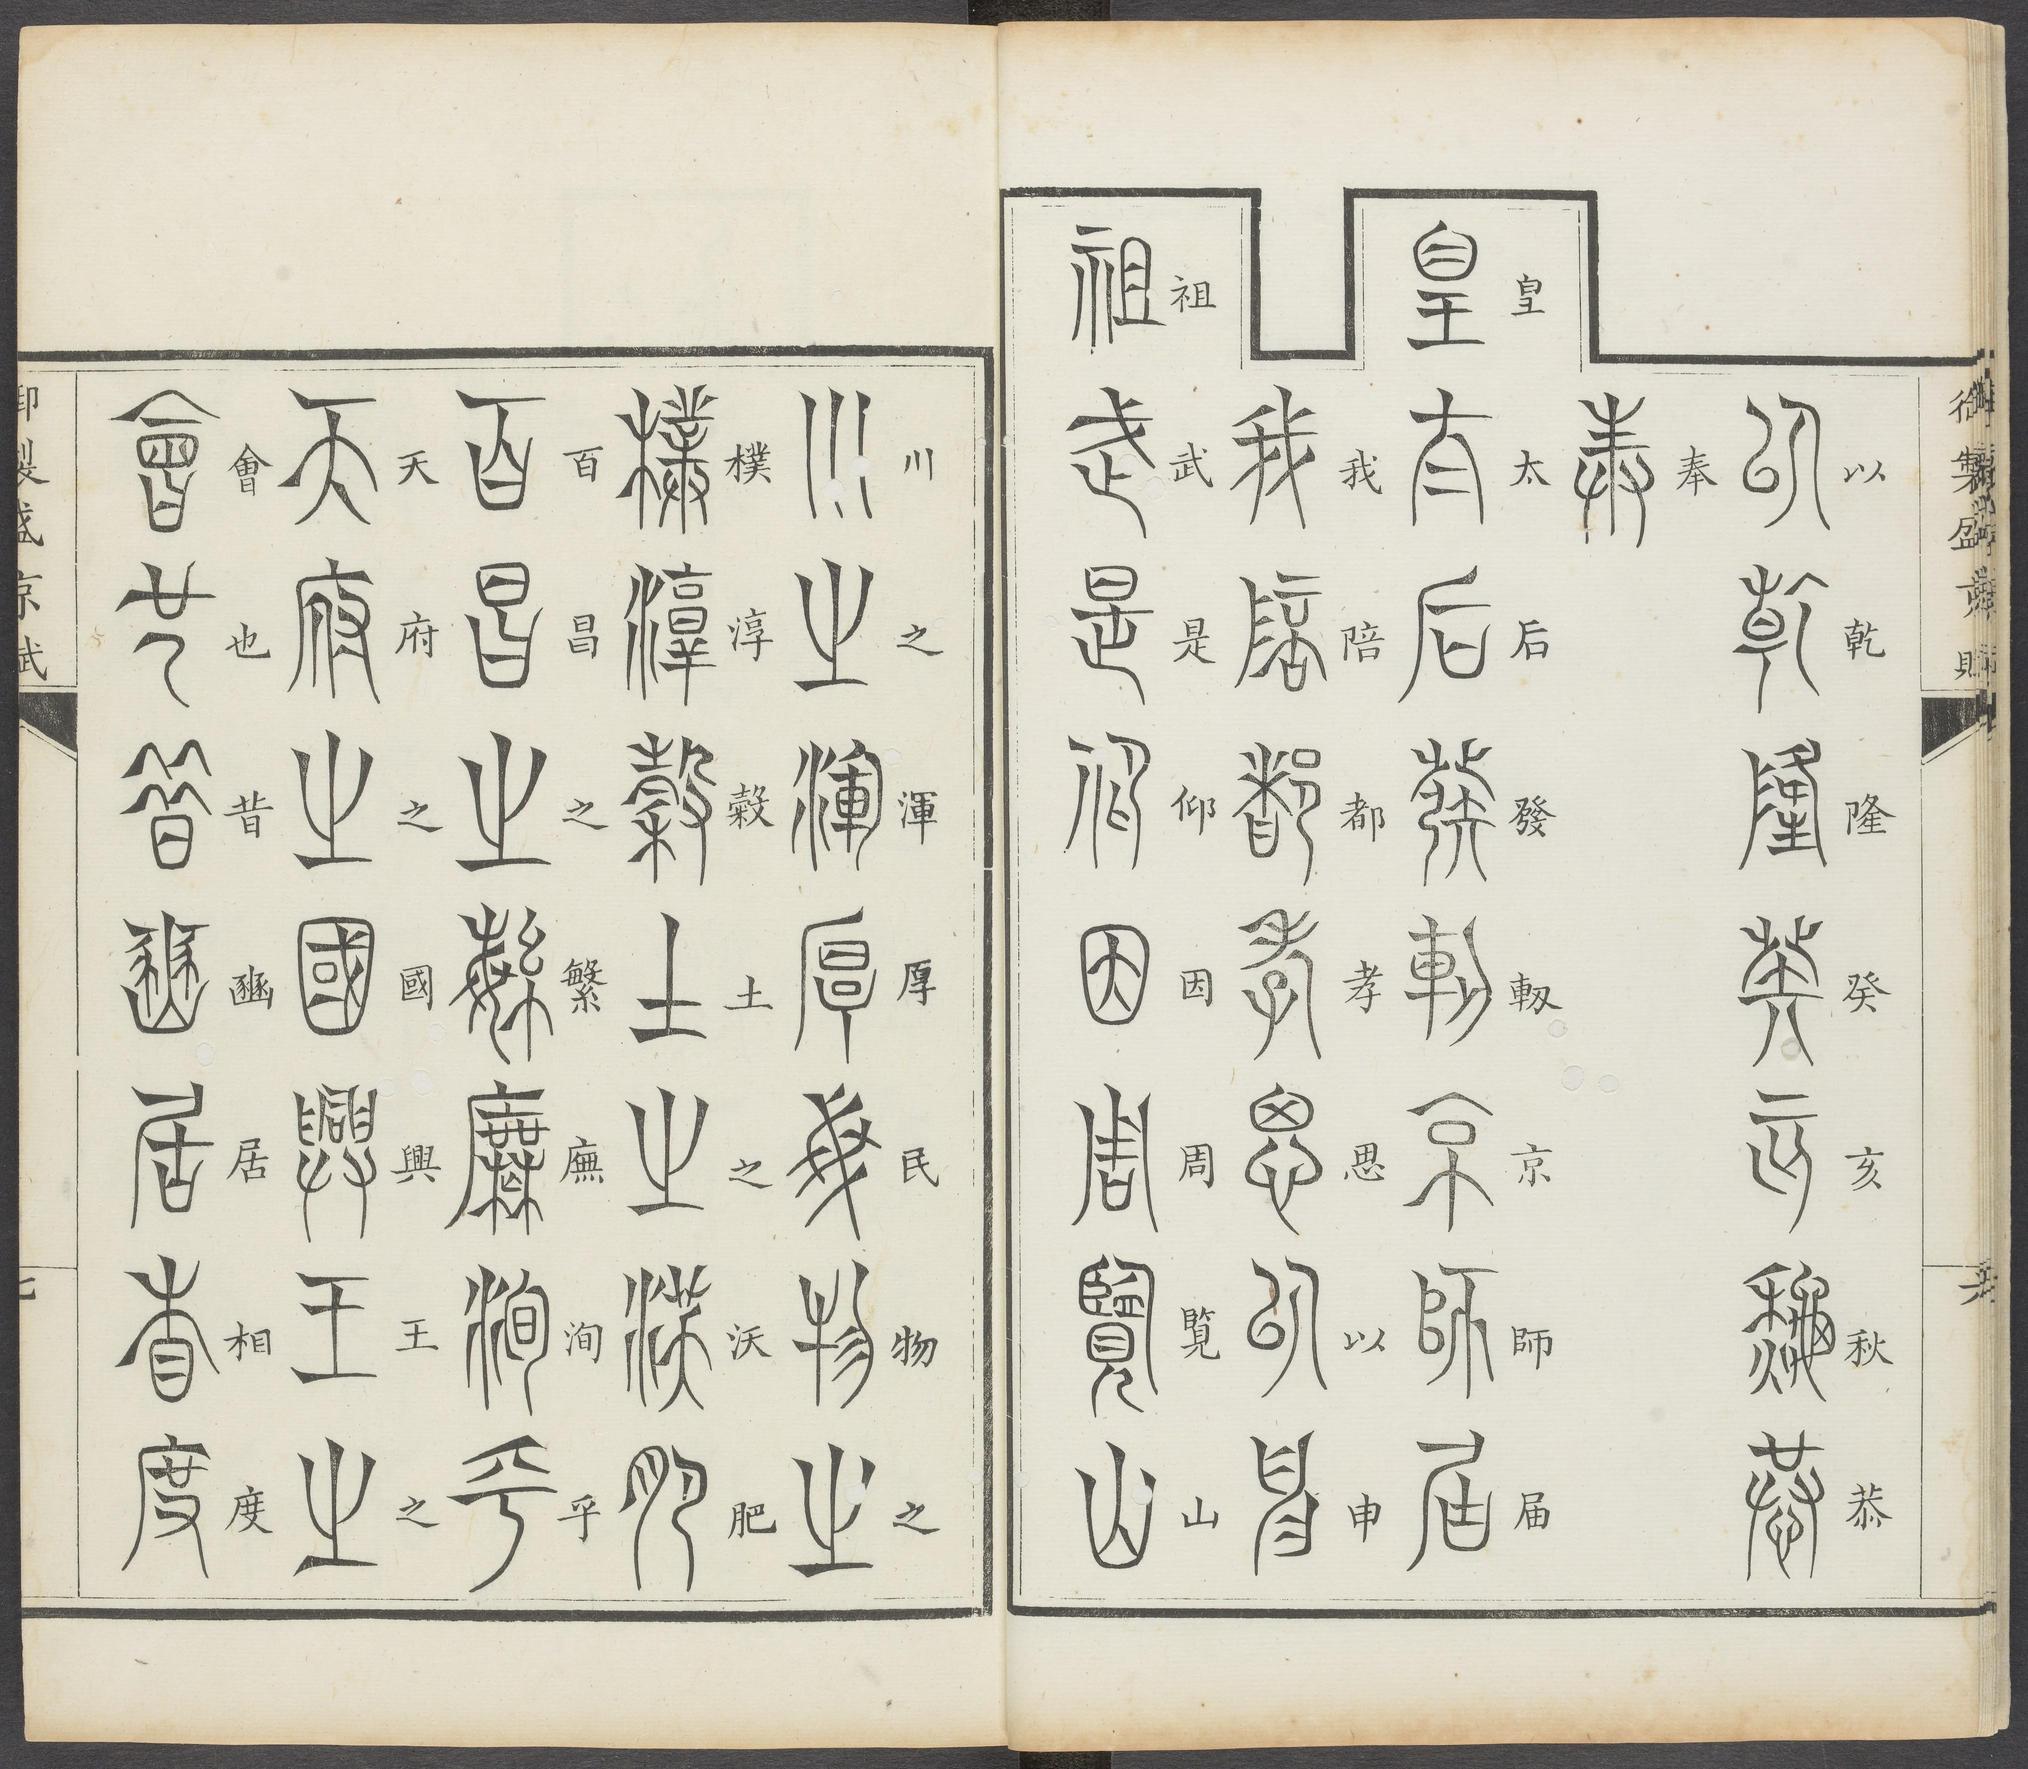 御製盛京賦
六
以乾隆癸亥秋恭
奉
皇太后發軔京師届
我陪都孝思以申
祖武是仰因周覧山
川之渾厚民物之
樸淳穀土之沃肥
百昌之繁廡洵乎
天府之國興王之
會也昔豳居相度
御製盛京賦
七